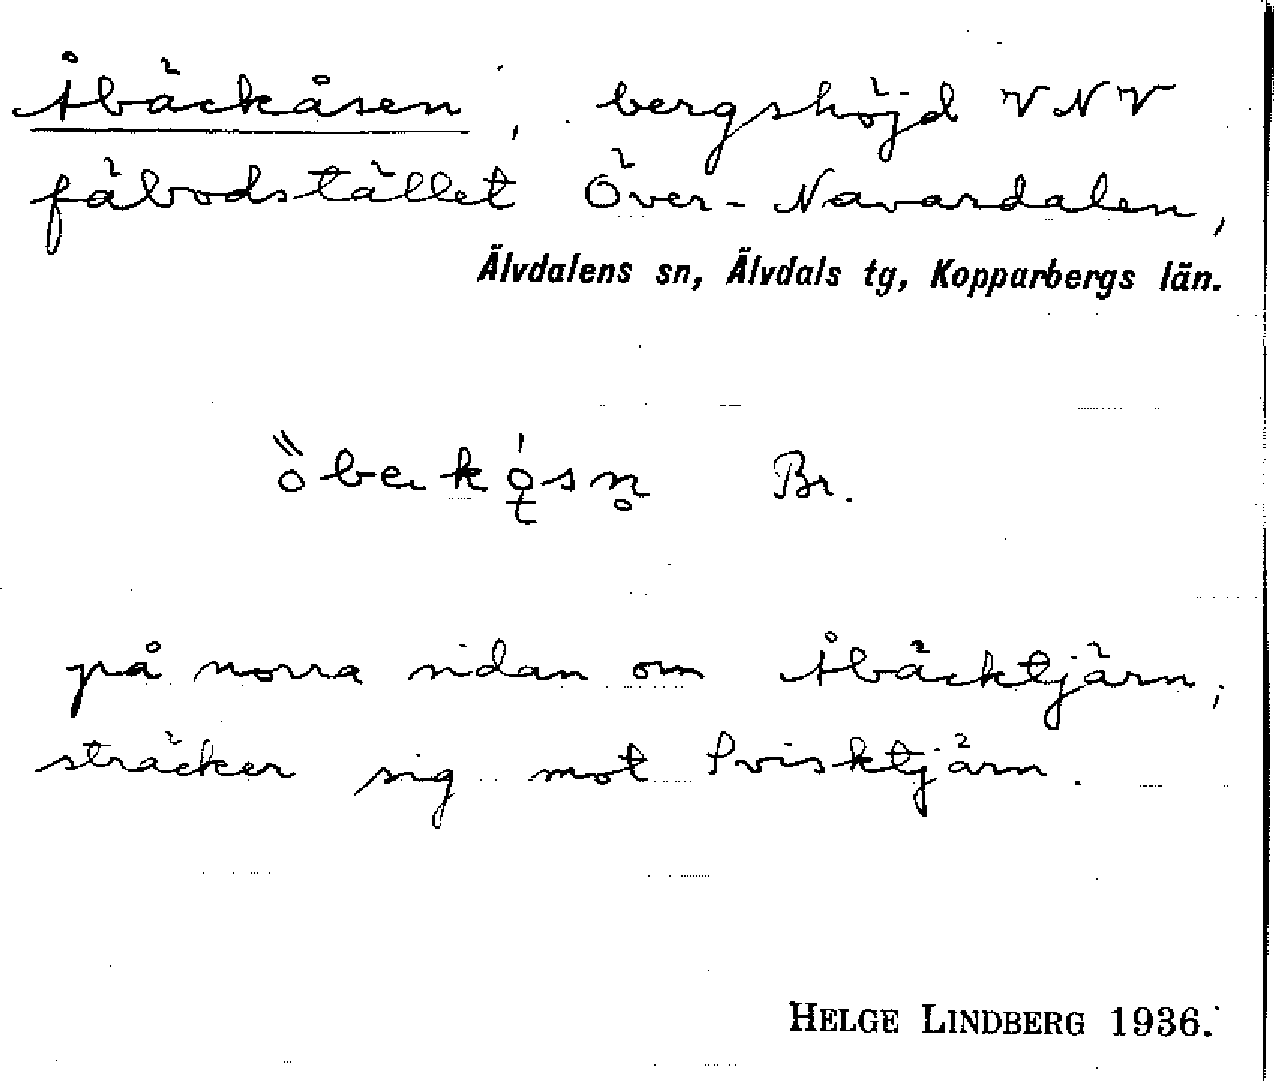 Åbäckåsen, bergshöjd VNV
fäbodstället Över-Navardalen,
Älvdalens sn, Älvdals tg, Kopparbergs län.
Br.
på norra sidan om Åbäcktjärn,
sträcker sig mot Svisktjärn.
HELGE LINDBERG 1936.